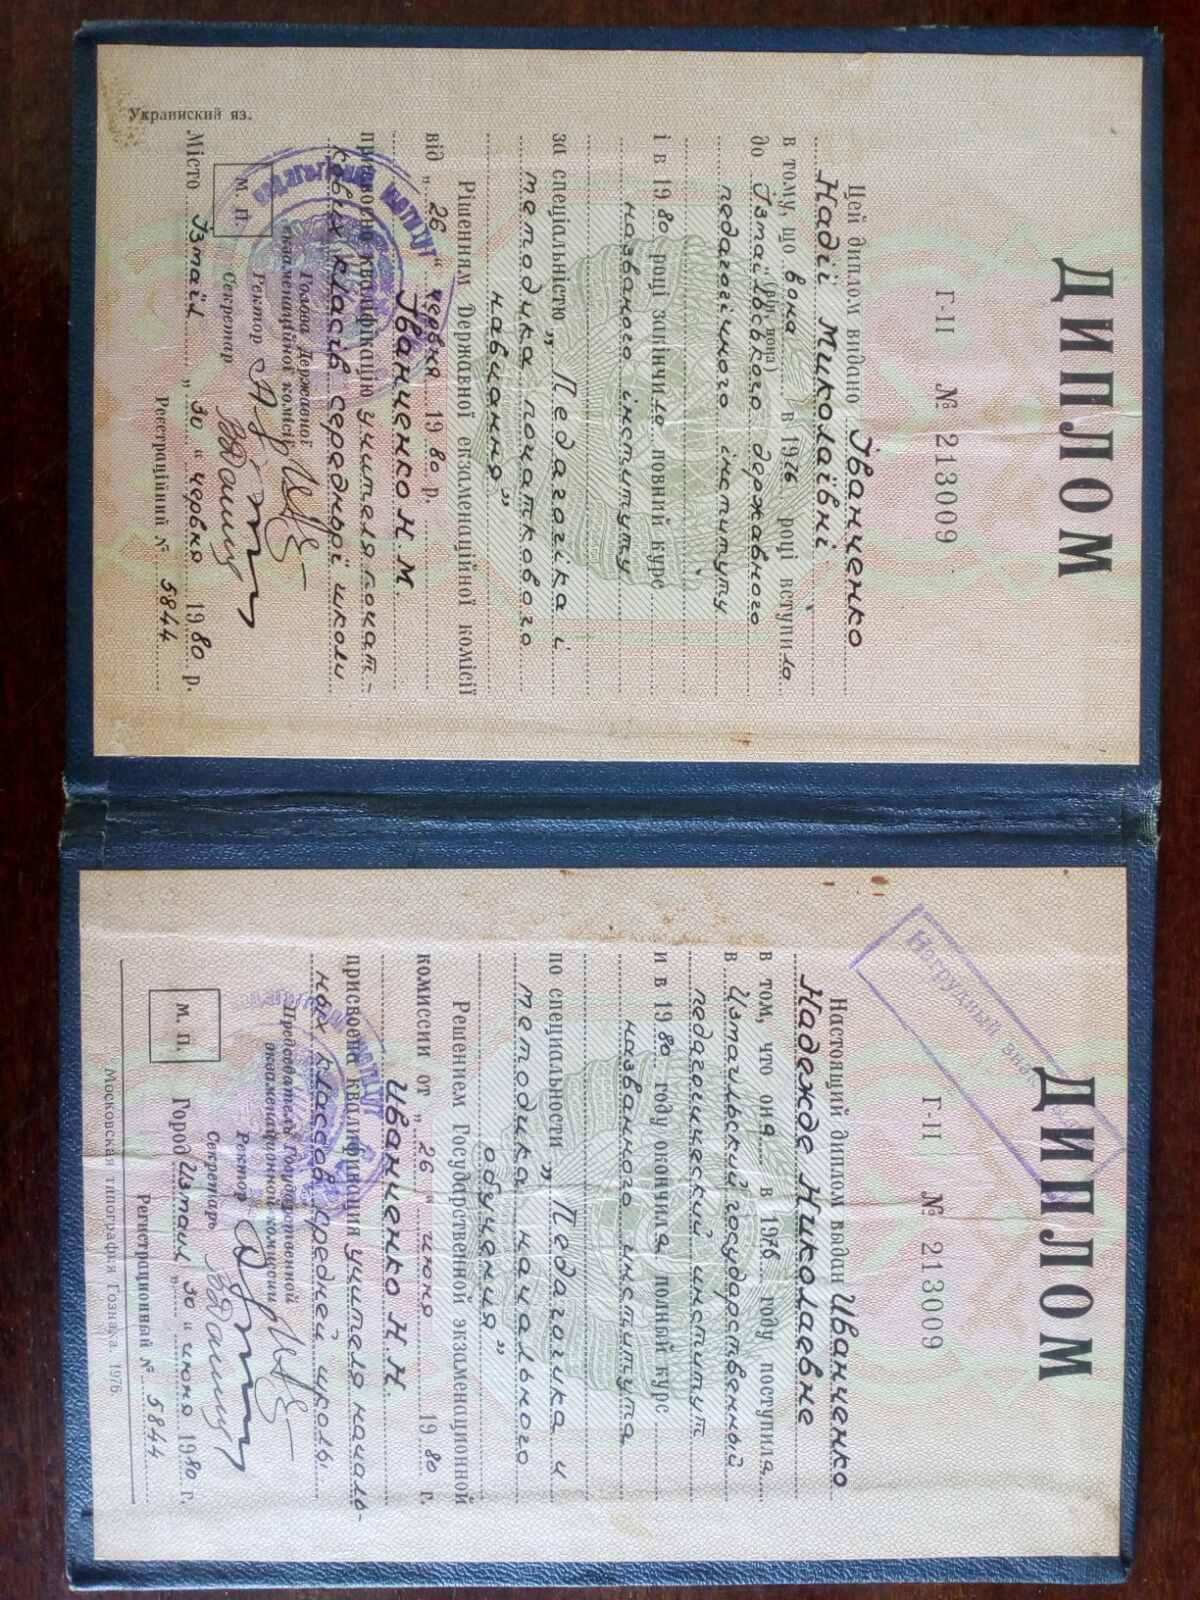 ДИПЛОМ
Г-II № 213009
Цей диплом видано Іванченко
Надії Миколаївні
в тому, що вона в 1976 році вступила
(він, вона)
до Ізмаїльського державного
педагогічного інституту
і в 1980 році закінчила повний курс
названого інституту
за спеціальністю „Педагогіка і
методика початкового
навчання"
Рішенням Державної екзаменаційної комісії
від „26" червня 1980 р.
Іванченко Н. М.
присвоєно кваліфікацію учителя почат-
кових класів середньої школи
Голова Державної
екзаменаційної комісії
Ректор
Секретар
М. П.
Місто Ізмаїл „30" червня 1980 р.
Реєстраційний № 5844
Украинский яз.
ДИПЛОМ
Нагрудный знак
Г-II № 213009
Настоящий диплом выдан Иванченко
Надежде Николаевне
в том, что она в 1976 году поступила
в Измаильский государственный
педагогический институт
и в 1980 году окончила полный курс
названного института
по специальности „Педагогика и
методика начального
обучения"
Решением Государственной экзаменационной
комиссии от „26" июня 1980 г.
Иванченко Н. Н.
присвоена квалификация учителя началь-
ных классов средней школы
Председатель Государственной
экзаменационной комиссии
Ректор
Секретарь
М. П.
Город Измаил „30" июня 1980 г.
Регистрационный № 5844
Московская типография Гознака. 1976.